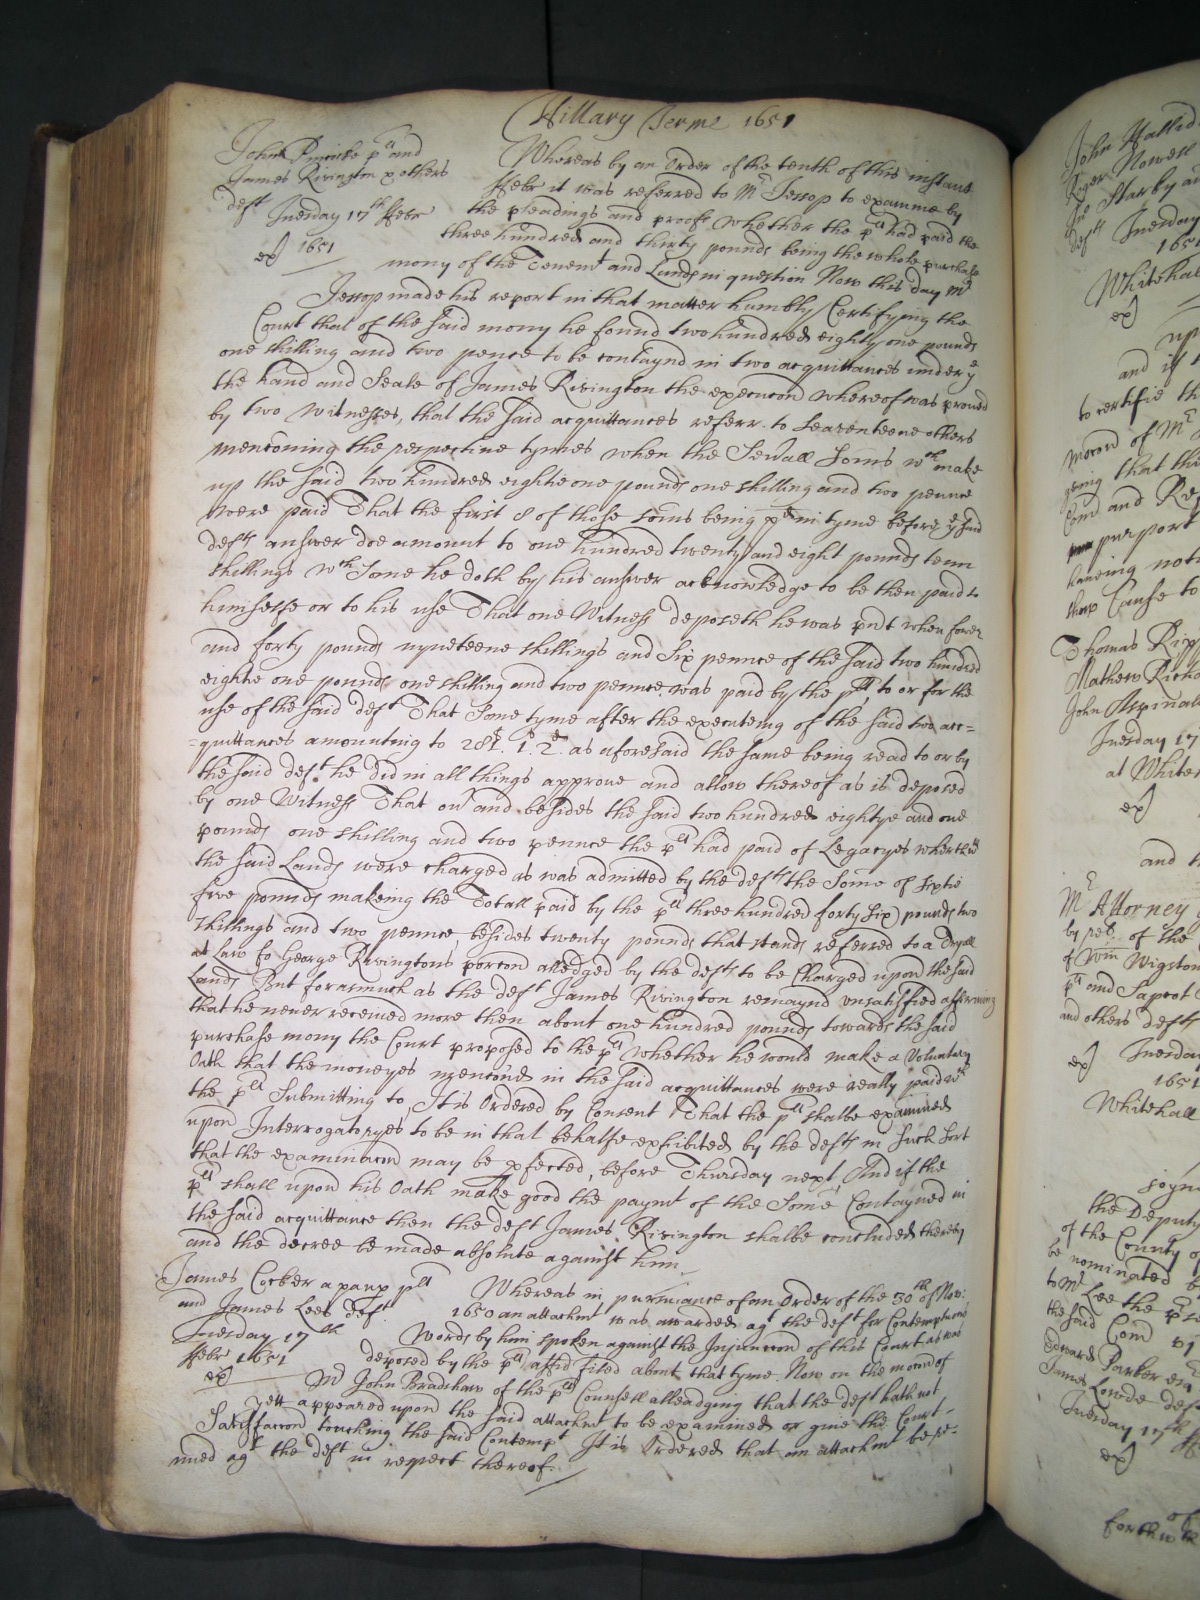 Hillary Terme 1651
John Pinninke plt and
James Rivington & others
deft Tuesday 17th Febr
ex 1651
Whereas by an Order of the tenth of this instant
Febr it was referred to Mr Jessop to examine by
the pleadings and proofs whether the plt had paid the
three hundred and thirty pounds being the whole purchase
mony of the Tenemt and Lands in question Now this day Mr
Jessop made his report in that matter humbly Certifying the
Court that of the said mony he found two hundred eighty one pounds
one shilling and two pence to be contaynd in two acquittances under ye
the hand and Seale of James Rivington the execucon whereof was proved
by two Witnesses, that the said acquittances referr to seaventeene others
mencoming the respective tymes when the Sevall Soms wch make
up the said two hundred eightie one pounds one shilling and two pence
were paid That the first 8 of those soms being pd in tyme before ye said
defts answer doe amount to one hundred twenty and eight pounds tenn
shillings wch Some he doth by his answer acknowledge to be then paid to
himselfe or to his use That one Witness deposeth he was pnt when fower
and forty pounds nyneteene shillings and Six pennce of the said two hundred
eightie one pounds one shilling and two pennce was paid by the plt to or for the
use of the said deft That Some tyme after the executeing of the said two acc=
=quittances amounting to 281l. 1s. 2d. as aforesaid the same being read to or by
the said deft he did in all things approve and allow thereof as is deposed
by one Witness That ov and besides the said two hundred eightye and one
pounds one shilling and two pennce the plt had paid of Legacyes wherewth
the said Lands were charged as was admitted by the defts the Some of Sixtie
five pounds makeing the Totall paid by the plt three hundred forty six pounds two
shillings and two pennce, besides twenty pounds that stands referred to a Tryall
at law for George Rivingtons porcon alledged by the defts to be Charged upon the said
Lands But forasmuch as the deft James Rivington remaynd unsatisfied affirming
that he never received more then about one hundred pounds towards the said
purchase mony the Court proposed to the plt whether he would make a Voluntary
Oath that the moneyes mencond in the said acquittances were really paid wch
the plt Submitting to, It is Ordered by Consent That the plt shalbe examined
upon Interrogatoryes to be in that behalfe exhibited by the defts in such sort
that the examinacon may be pfected, before Thursday next, And if the
plt shall upon his Oath make good the paymt of the Some Contayned in
the said acquittance then the deft James Rivington shalbe concluded thereby
and the decree be made absolute against him
James Cocker a paup plt
and James Lees deft
Tuesday 17th
Febr 1651
ex
Whereas in pursuance of an Order of the 30th of Nov:
1650 an attachmt was awarded agt the deft for Contemptuous
Words by him spoken against the Injunccon of this Court as was
deposed by the plts affid filed about that tyme. Now on the mocon of
Mr John Bradshaw of the plts Counsell alleadging that the deft hath not
yett appeared upon the said attachmt to be examined or give the Court
Satisfaccon touching the said Contempt It is Ordered that an attachmt be re=
nued agt the deft in respect thereof.
John Hallid
Roger Nowell
Starky a
defts Tuesday
165
Whitehal
ex
up
and if
to certifie th
mocon of Mr
that thi
Com and Re
purport
haveing not
Cause to
Thomas Ripp
Mathew Richa
John Aspinall
Tuesday 17
at White
ex
and th
Mr Attorney
by rel. of the
of Wm Wigston
plt and Sapcot
and others defts
ex Tuesday
1651
Whitehall
joyn
the Deputy
of the County of
be nominated b
to Mr Lee the
the said Com
Edward Parker
James Lowde def
Tuesday 17th
ex
forthwth